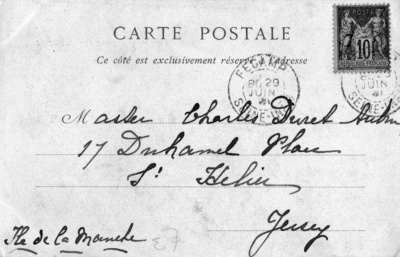 CARTE POSTALE
Ce côté est exclusivement réservé à l'adresse
POSTES
10
FECAMP
29
JUIN
SEINE-INF
JUIN
Master Charles
17 Duhamel Place
St Helier
Jersey
Ile de la Manche